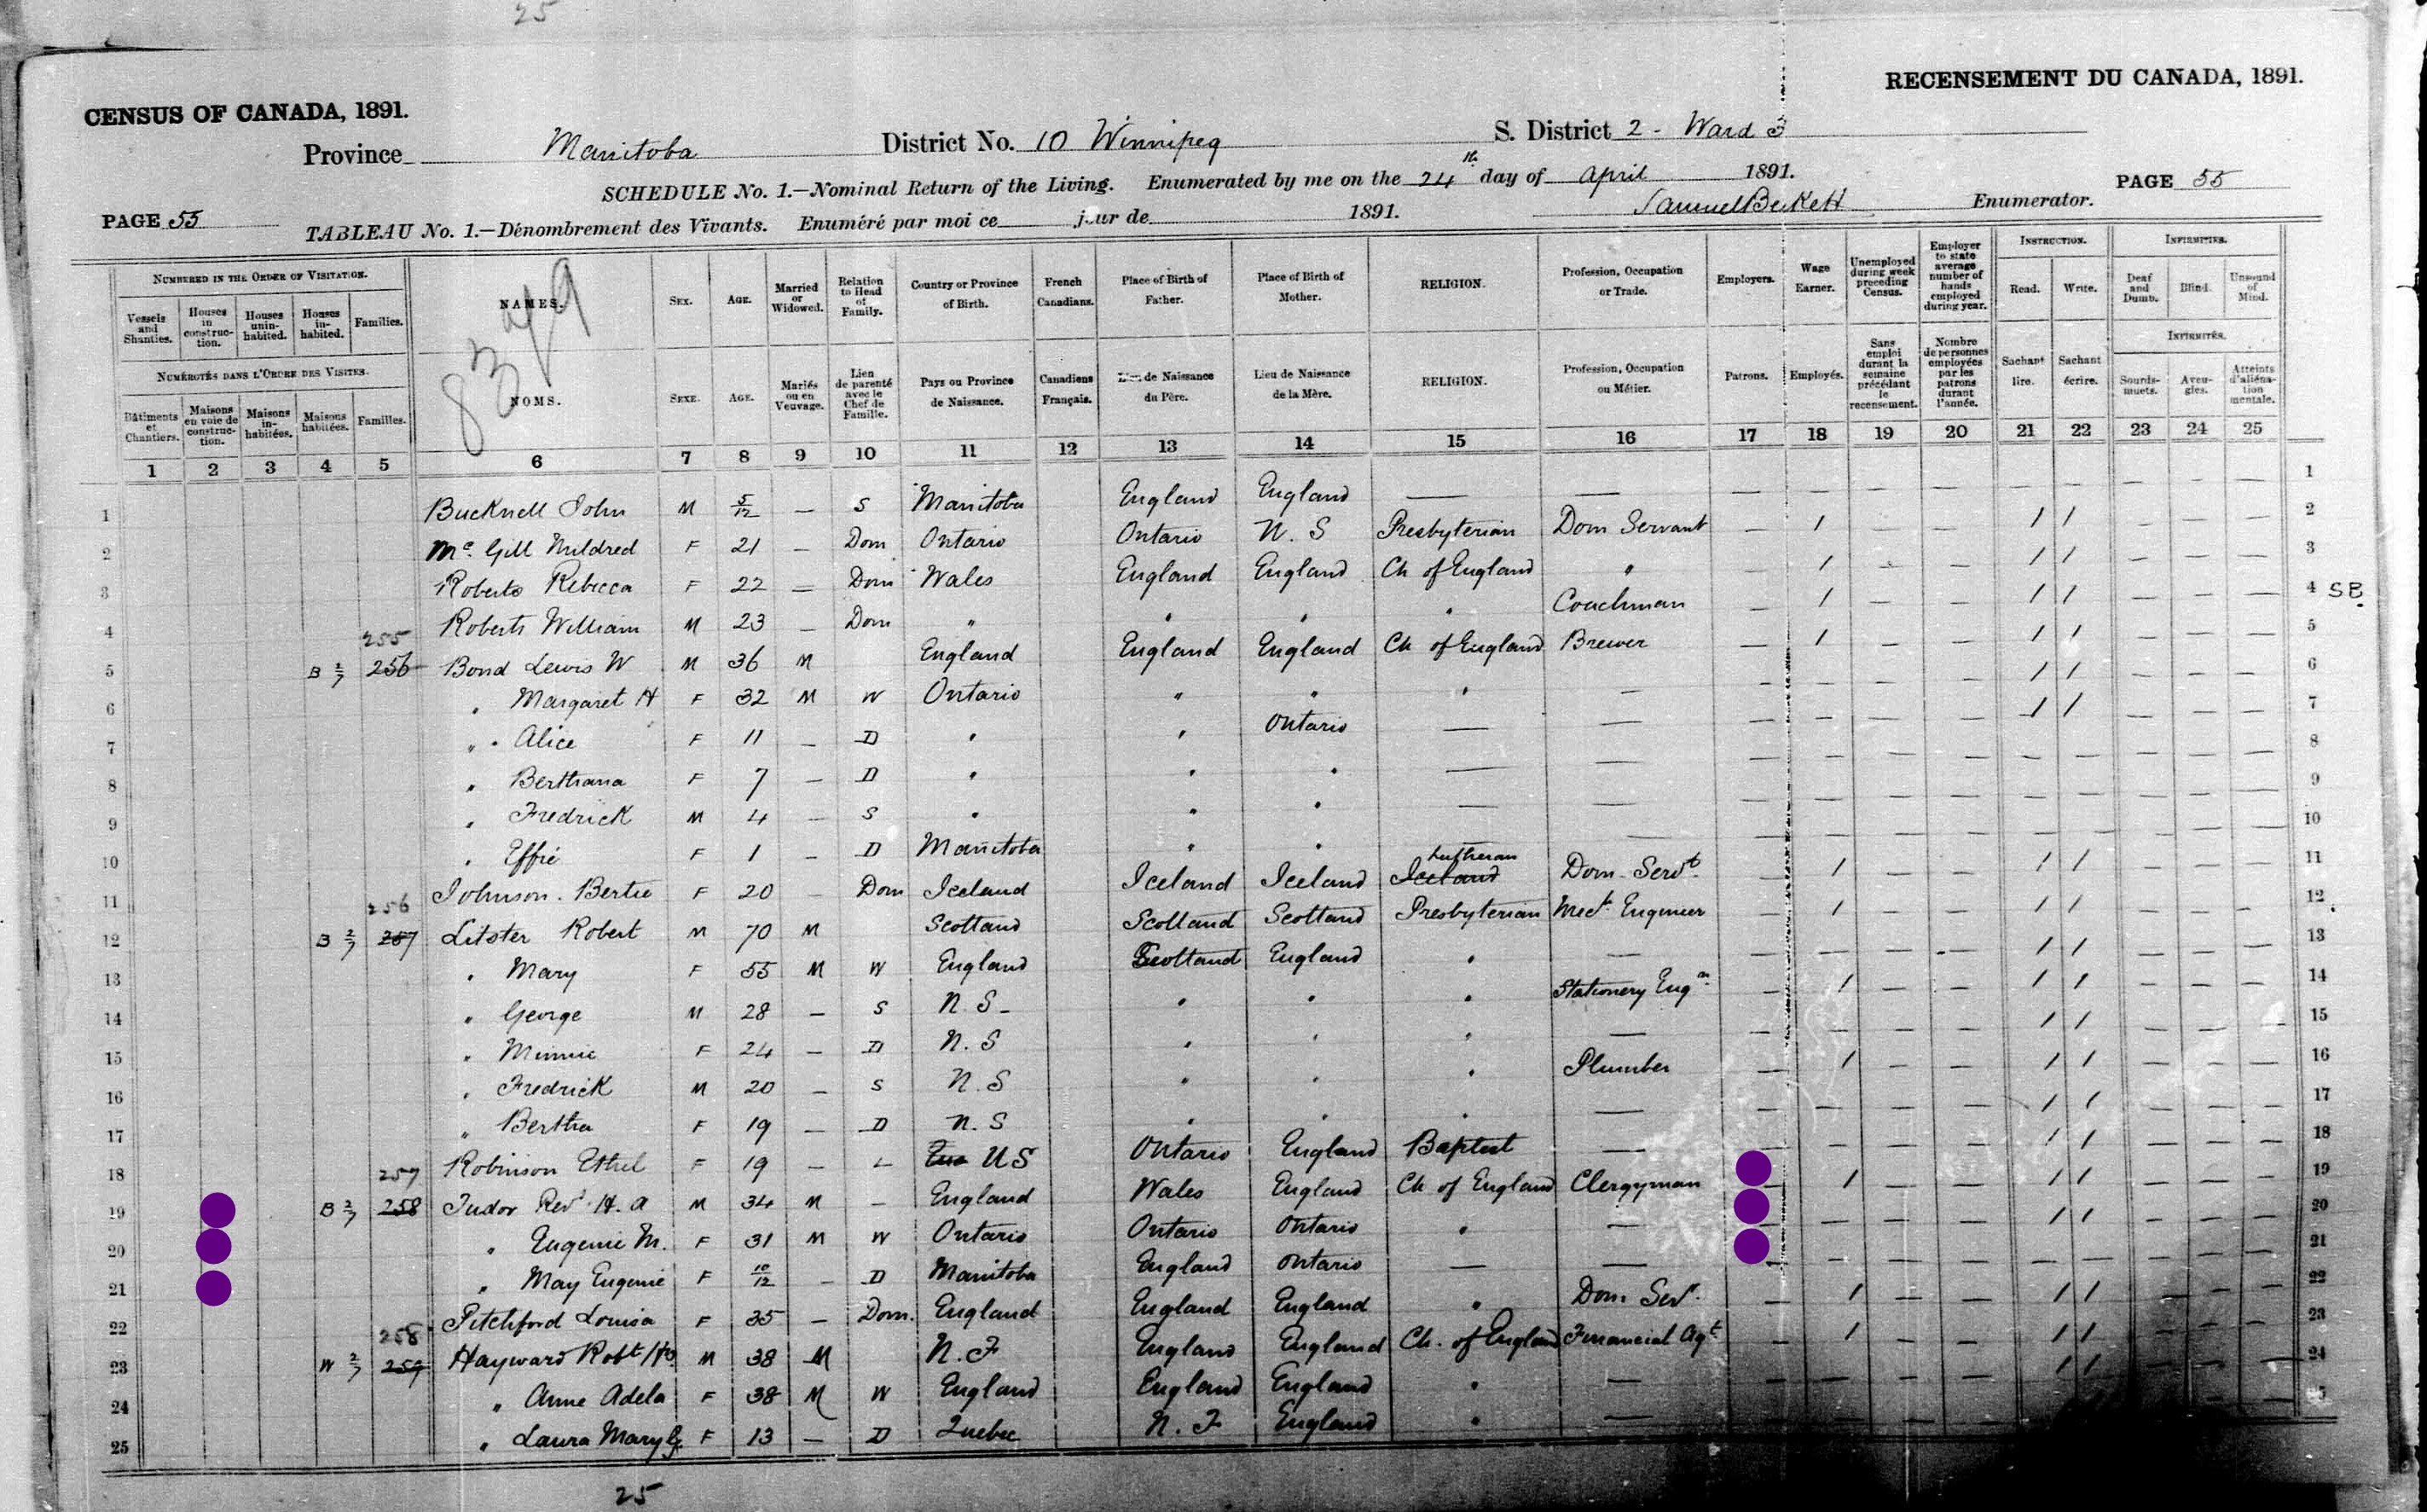 25
CENSUS OF CANADA, 1891.
RECENSEMENT DU CANADA, 1891.
Province Manitoba District No. 10 Winnipeg S. District 2 - Ward 3
SCHEDULE No. 1.—Nominal Return of the Living. Enumerated by me on the 24th day of April 1891.
PAGE 55
PAGE 55
TABLEAU No. 1.—Dénombrement des Vivants. Enuméré par moi ce jour de 1891. Samuel Beckett Enumerator.
NUMBERED IN THE ORDER OF VISITATION.
Vessels and Shanties. Houses in construction. Houses uninhabited. Houses inhabited. Families.
NAMES. SEX. AGE. Married or Widowed. Relation to Head of Family. Country or Province of Birth. French Canadians. Place of Birth of Father. Place of Birth of Mother. RELIGION. Profession, Occupation or Trade. Employers. Wage Earner. Unemployed during week preceding Census. Employer to state average number of hands employed during year. INSTRUCTION. Read. Write. INFIRMITIES. Deaf and Dumb. Blind. Unsound of Mind.
NUMÉROTÉS DANS L'ORDRE DES VISITES.
Bâtiments et Chantiers. Maisons en voie de construction. Maisons inhabitées. Maisons habitées. Familles.
NOMS. SEXE. AGE. Mariés ou en Veuvage. Lien de parenté avec le Chef de Famille. Pays ou Province de Naissance. Canadiens Français. Lieu de Naissance du Père. Lieu de Naissance de la Mère. RELIGION. Profession, Occupation ou Métier. Patrons. Employés. Sans emploi durant la semaine précédant le recensement. Nombre de personnes employées par les patrons durant l'année. Sachant lire. Sachant écrire. INFIRMITÉS. Sourds-muets. Aveugles. Atteints d'aliénation mentale.
1 2 3 4 5 6 7 8 9 10 11 12 13 14 15 16 17 18 19 20 21 22 23 24 25
1 Bucknell John M 5/12 — S Manitoba England England — — — — — — — — — — — 1
2 Mc. Gill Mildred F 21 — Dom Ontario Ontario N. S Presbyterian Dom Servant — 1 — — 1 1 — — — 2
3 Roberts Rebecca F 22 — Dom Wales England England Ch of England " — 1 — — 1 1 — — — 3
4 Roberts William M 23 — Dom " " " " Coachman — 1 — — 1 1 — — — 4 SB.
255
5 B 2/7 256 Bond Lewis W M 36 M England England England Ch of England Brewer — 1 — — 1 1 — — — 5
6 " Margaret H F 32 M W Ontario " " " — — — — — 1 1 — — — 6
7 " Alice F 11 — D " " Ontario — — — — — — 1 1 — — — 7
8 " Berthana F 7 — D " " " — — — — — — — — — — — 8
9 " Fredrick M 4 — S " " " — — — — — — — — — — — 9
10 " Effie F 1 — D Manitoba " " — — — — — — — — — — — 10
11 Johnson. Bertie F 20 — Dom Iceland Iceland Iceland Iceland Lutheran Dom. Servt. — 1 — — 1 1 — — — 11
256
12 B 2/7 257 Litster Robert M 70 M Scotland Scotland Scotland Presbyterian Mect. Engineer — 1 — — 1 1 — — — 12
13 " Mary F 55 M W England Scotland England " — — — — — 1 1 — — — 13
14 " George M 28 — S N. S - " " " Stationery Engr — 1 — — 1 1 — — — 14
15 " Minnie F 24 — D N. S " " " — — — — — 1 1 — — — 15
16 " Fredrick M 20 — S N. S " " " Plumber — 1 — — 1 1 — — — 16
17 " Bertha F 19 — D N. S " " " — — — — — 1 1 — — — 17
18 Robinson Ethel F 19 — L US Ontario England Baptist — — — — — 1 1 — — — 18
257
19 B 2/7 258 Tudor Revd. H. A M 34 M — England Wales England Ch of England Clergyman — 1 — — 1 1 — — — 19
20 " Eugenie M. F 31 M W Ontario Ontario Ontario " — — — — — 1 1 — — — 20
21 " May Eugenie F 10/12 — D Manitoba England Ontario — — — — — — — — — — — 21
22 Pitchford Louisa F 35 — Dom. England England England " Dom. Servt. — 1 — — 1 1 — — — 22
258
23 W 2/7 259 Hayward Robt M 38 M N. F England England Ch. of England Financial Agt. — 1 — — 1 1 — — — 23
24 " Anne Adela F 38 M W England England England " — — — — — 1 1 — — — 24
25 " Laura Mary F 13 — D Quebec N. F England " — 25
25